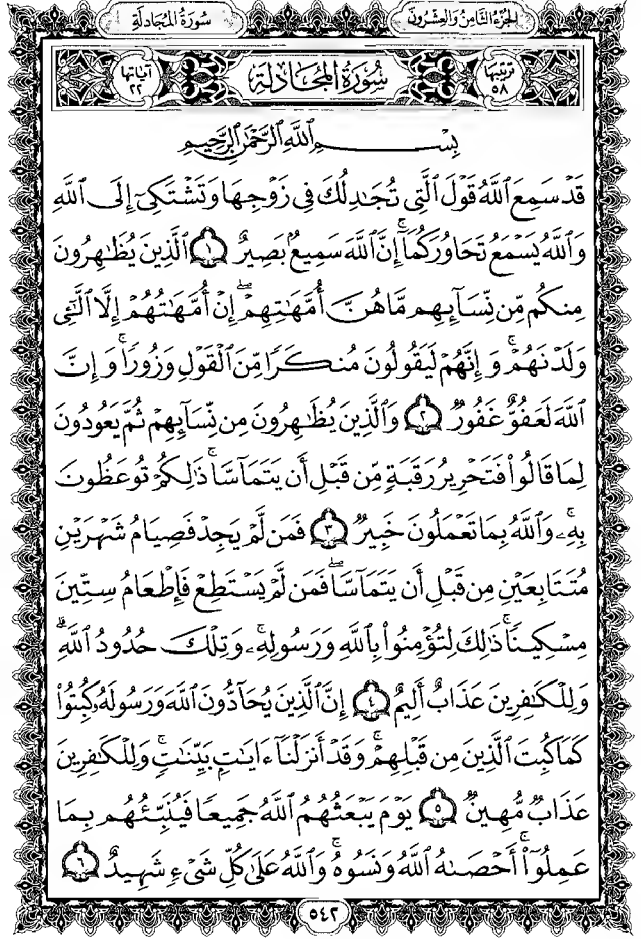 الجُزْءُ الثَّامِنُ وَالعِشْرُونَ سُورَةُ المُجَادلَةِ
ترتيبها ٥٨ سُورَةُ المُجَادلَةِ آياتها ٢٢
بِسْمِ اللَّهِ الرَّحْمَٰنِ الرَّحِيمِ
قَدْ سَمِعَ ٱللَّهُ قَوْلَ ٱلَّتِي تُجَٰدِلُكَ فِي زَوْجِهَا وَتَشْتَكِيٓ إِلَى ٱللَّهِ
وَٱللَّهُ يَسْمَعُ تَحَاوُرَكُمَآۚ إِنَّ ٱللَّهَ سَمِيعُۢ بَصِيرٌ ١ ٱلَّذِينَ يُظَٰهِرُونَ
مِنكُم مِّن نِّسَآئِهِم مَّا هُنَّ أُمَّهَٰتِهِمْۖ إِنْ أُمَّهَٰتُهُمْ إِلَّا ٱلَّٰٓـِٔي
وَلَدْنَهُمْۚ وَإِنَّهُمْ لَيَقُولُونَ مُنكَرًا مِّنَ ٱلْقَوْلِ وَزُورًاۚ وَإِنَّ
ٱللَّهَ لَعَفُوٌّ غَفُورٌ ٢ وَٱلَّذِينَ يُظَٰهِرُونَ مِن نِّسَآئِهِمْ ثُمَّ يَعُودُونَ
لِمَا قَالُوا۟ فَتَحْرِيرُ رَقَبَةٍ مِّن قَبْلِ أَن يَتَمَآسَّاۚ ذَٰلِكُمْ تُوعَظُونَ
بِهِۦۚ وَٱللَّهُ بِمَا تَعْمَلُونَ خَبِيرٌ ٣ فَمَن لَّمْ يَجِدْ فَصِيَامُ شَهْرَيْنِ
مُتَتَابِعَيْنِ مِن قَبْلِ أَن يَتَمَآسَّاۖ فَمَن لَّمْ يَسْتَطِعْ فَإِطْعَامُ سِتِّينَ
مِسْكِينًاۚ ذَٰلِكَ لِتُؤْمِنُوا۟ بِٱللَّهِ وَرَسُولِهِۦۚ وَتِلْكَ حُدُودُ ٱللَّهِۗ
وَلِلْكَٰفِرِينَ عَذَابٌ أَلِيمٌ ٤ إِنَّ ٱلَّذِينَ يُحَآدُّونَ ٱللَّهَ وَرَسُولَهُۥ كُبِتُوا۟
كَمَا كُبِتَ ٱلَّذِينَ مِن قَبْلِهِمْۚ وَقَدْ أَنزَلْنَآ ءَايَٰتٍۭ بَيِّنَٰتٍۚ وَلِلْكَٰفِرِينَ
عَذَابٌ مُّهِينٌ ٥ يَوْمَ يَبْعَثُهُمُ ٱللَّهُ جَمِيعًا فَيُنَبِّئُهُم بِمَا
عَمِلُوٓا۟ۚ أَحْصَىٰهُ ٱللَّهُ وَنَسُوهُۚ وَٱللَّهُ عَلَىٰ كُلِّ شَيْءٍ شَهِيدٌ ٦
٥٤٢